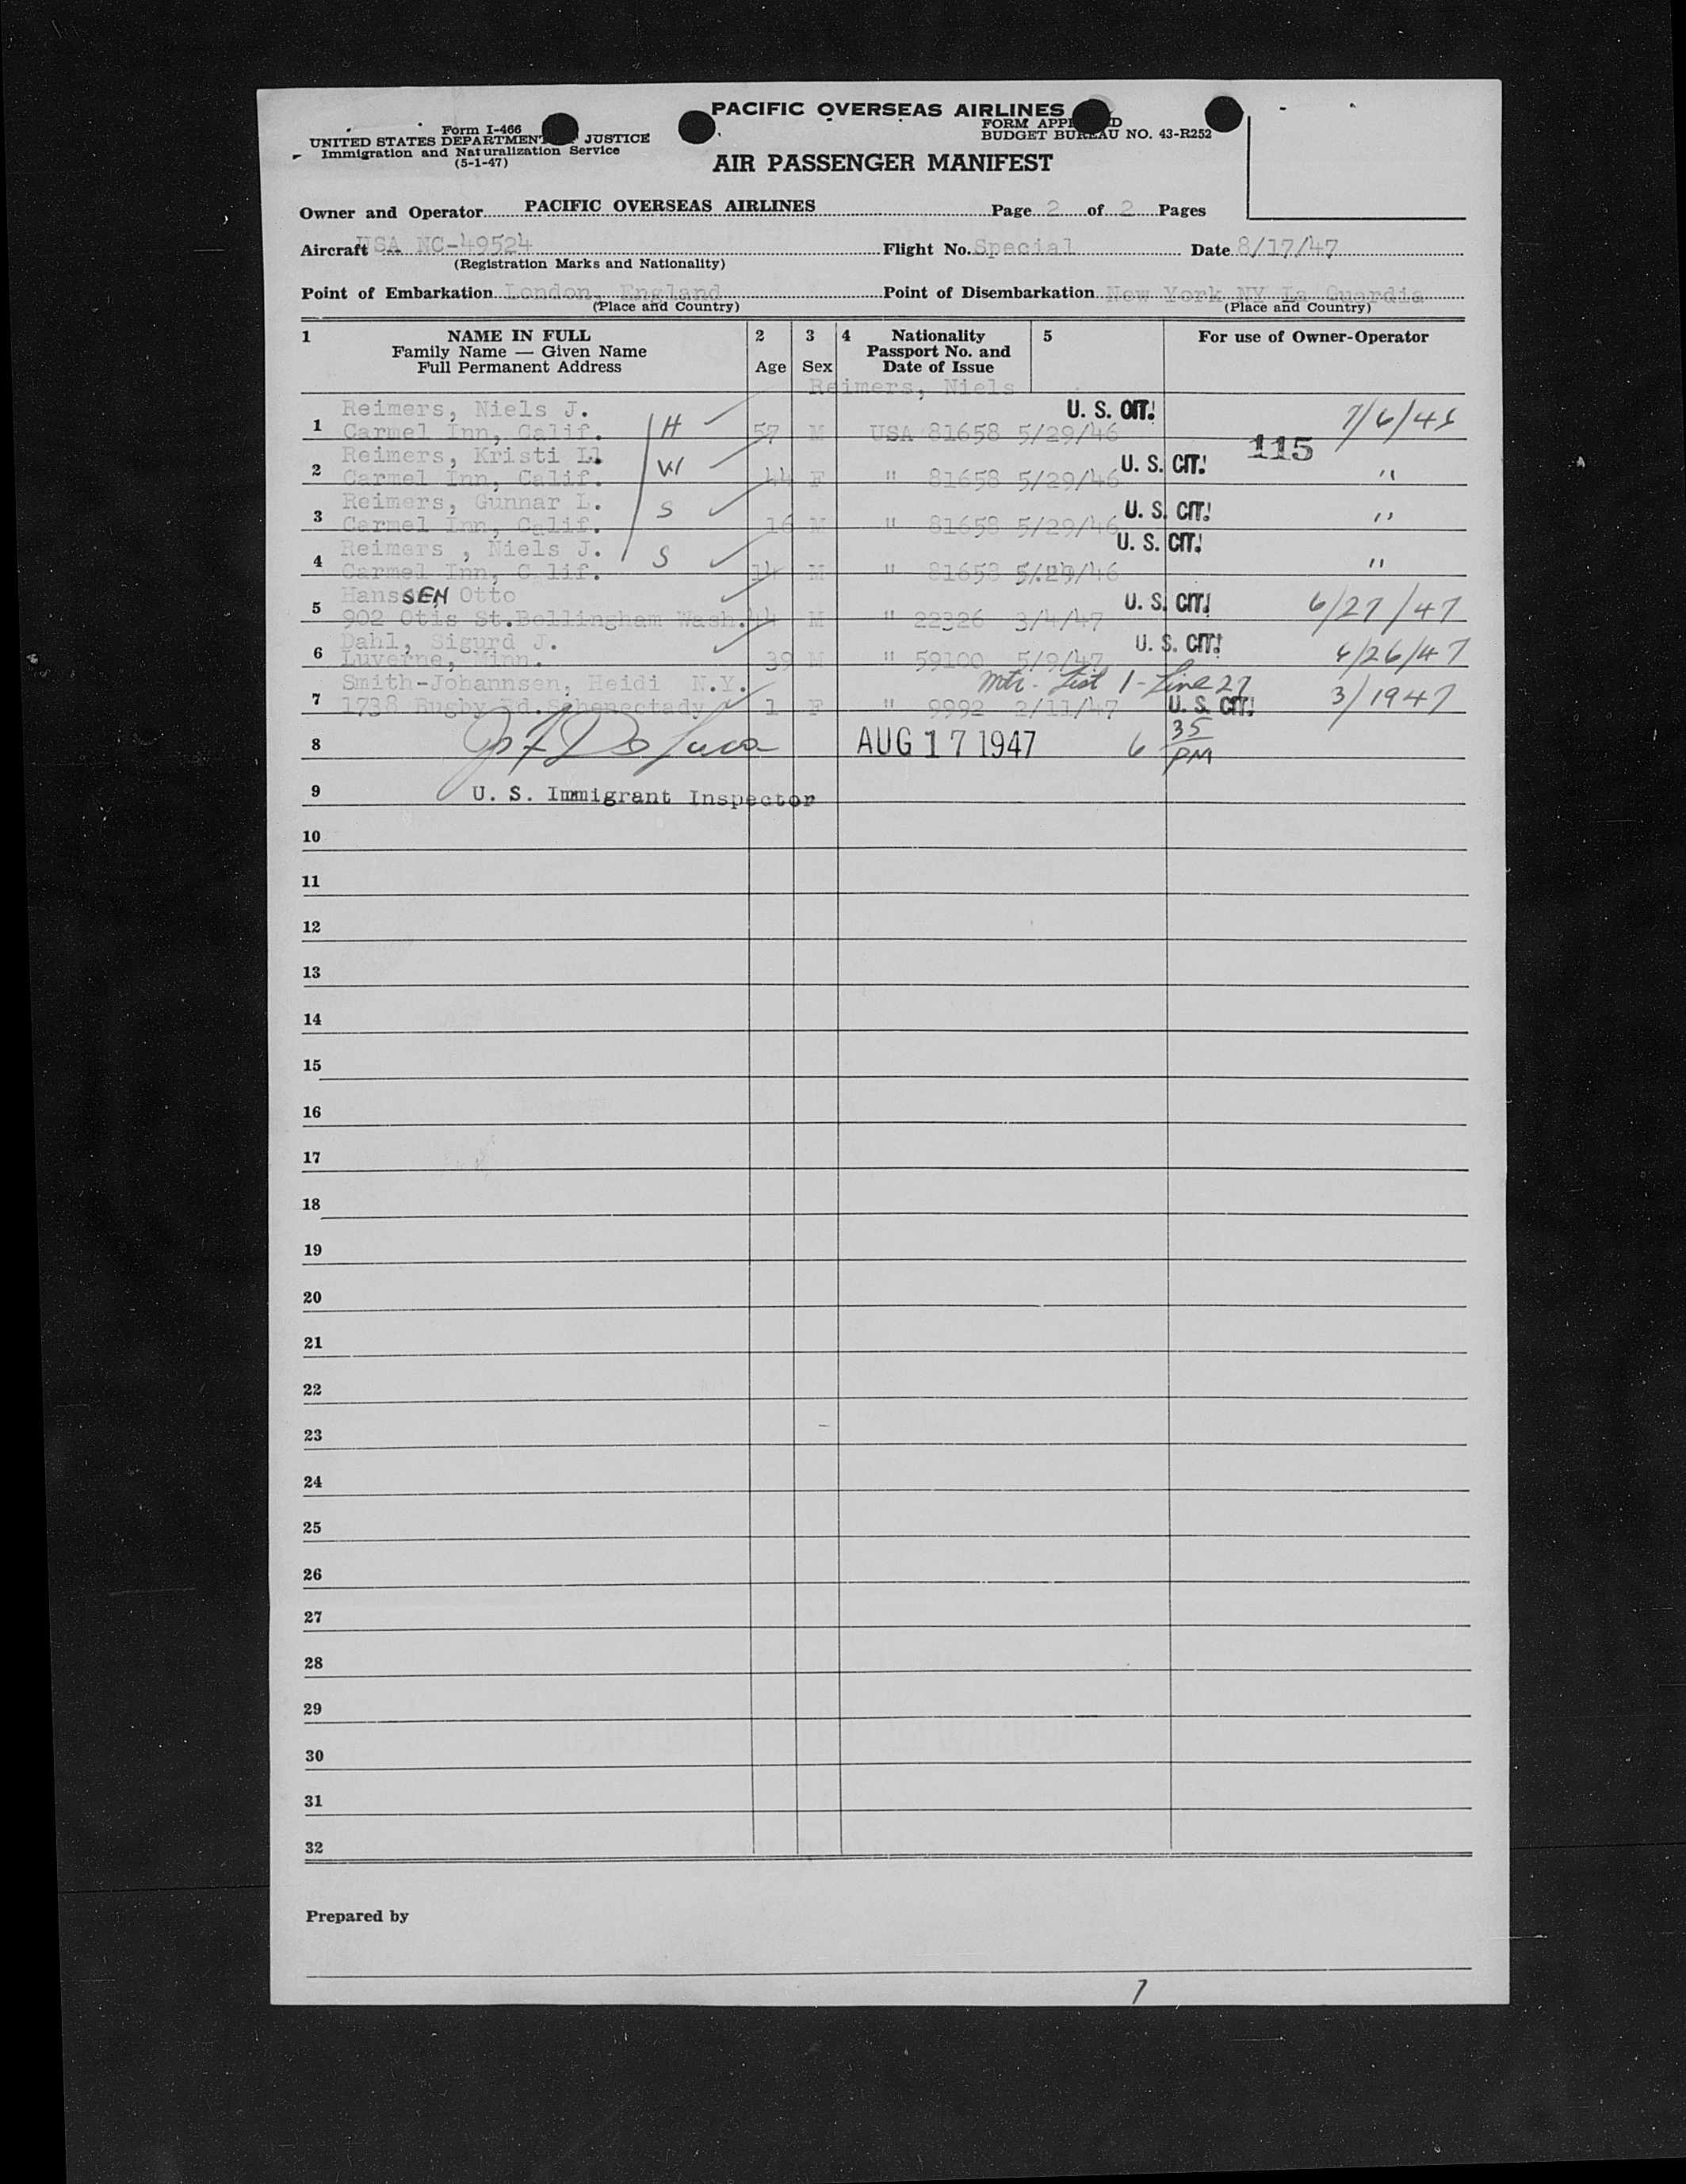 PACIFIC OVERSEAS AIRLINES
Form I-466
UNITED STATES DEPARTMENT JUSTICE
Immigration and Naturalization Service
(5-1-47)
FORM APP D
BUDGET BUREAU NO. 43-R252
AIR PASSENGER MANIFEST
Owner and Operator PACIFIC OVERSEAS AIRLINES Page 2 of 2 Pages
Aircraft USA NC-49524 Flight No. Special Date 8/17/47
(Registration Marks and Nationality)
Point of Embarkation London, England Point of Disembarkation New York NY La Guardia
(Place and Country) (Place and Country)
1 NAME IN FULL 2 3 4 Nationality 5 For use of Owner-Operator
Family Name — Given Name Passport No. and
Full Permanent Address Age Sex Date of Issue
Reimers, Niels
Reimers, Niels J. U. S. CIT.
1 Carmel Inn, Calif. H 57 M USA 81658 5/29/46 7/6/46
115
Reimers, Kristi L. U. S. CIT.
2 Carmel Inn, Calif. W 44 F " 81658 5/29/46 "
Reimers, Gunnar L. U. S. CIT.
3 Carmel Inn, Calif. S 16 M " 81658 5/29/46 "
Reimers , Niels J. U. S. CIT.
4 Carmel Inn, C lif. S 14 M " 81658 5/29/46 "
HansSEN Otto U. S. CIT.
5 902 Otis St. Bellingham Wash. 44 M " 22326 3/4/47 6/27/47
Dahl, Sigurd J. U. S. CIT.
6 Luverne, Minn. 39 M " 59100 5/9/47 6/26/47
Smith-Johannsen, Heidi N.Y. Mtr. List 1 - Line 27
7 1738 Rugby Rd. Schenectady 1 F " 9992 2/11/47 U. S. CIT. 3/1947
8 AUG 17 1947 6 35 PM
9 U. S. Immigrant Inspector
10
11
12
13
14
15
16
17
18
19
20
21
22
23
24
25
26
27
28
29
30
31
32
Prepared by
7